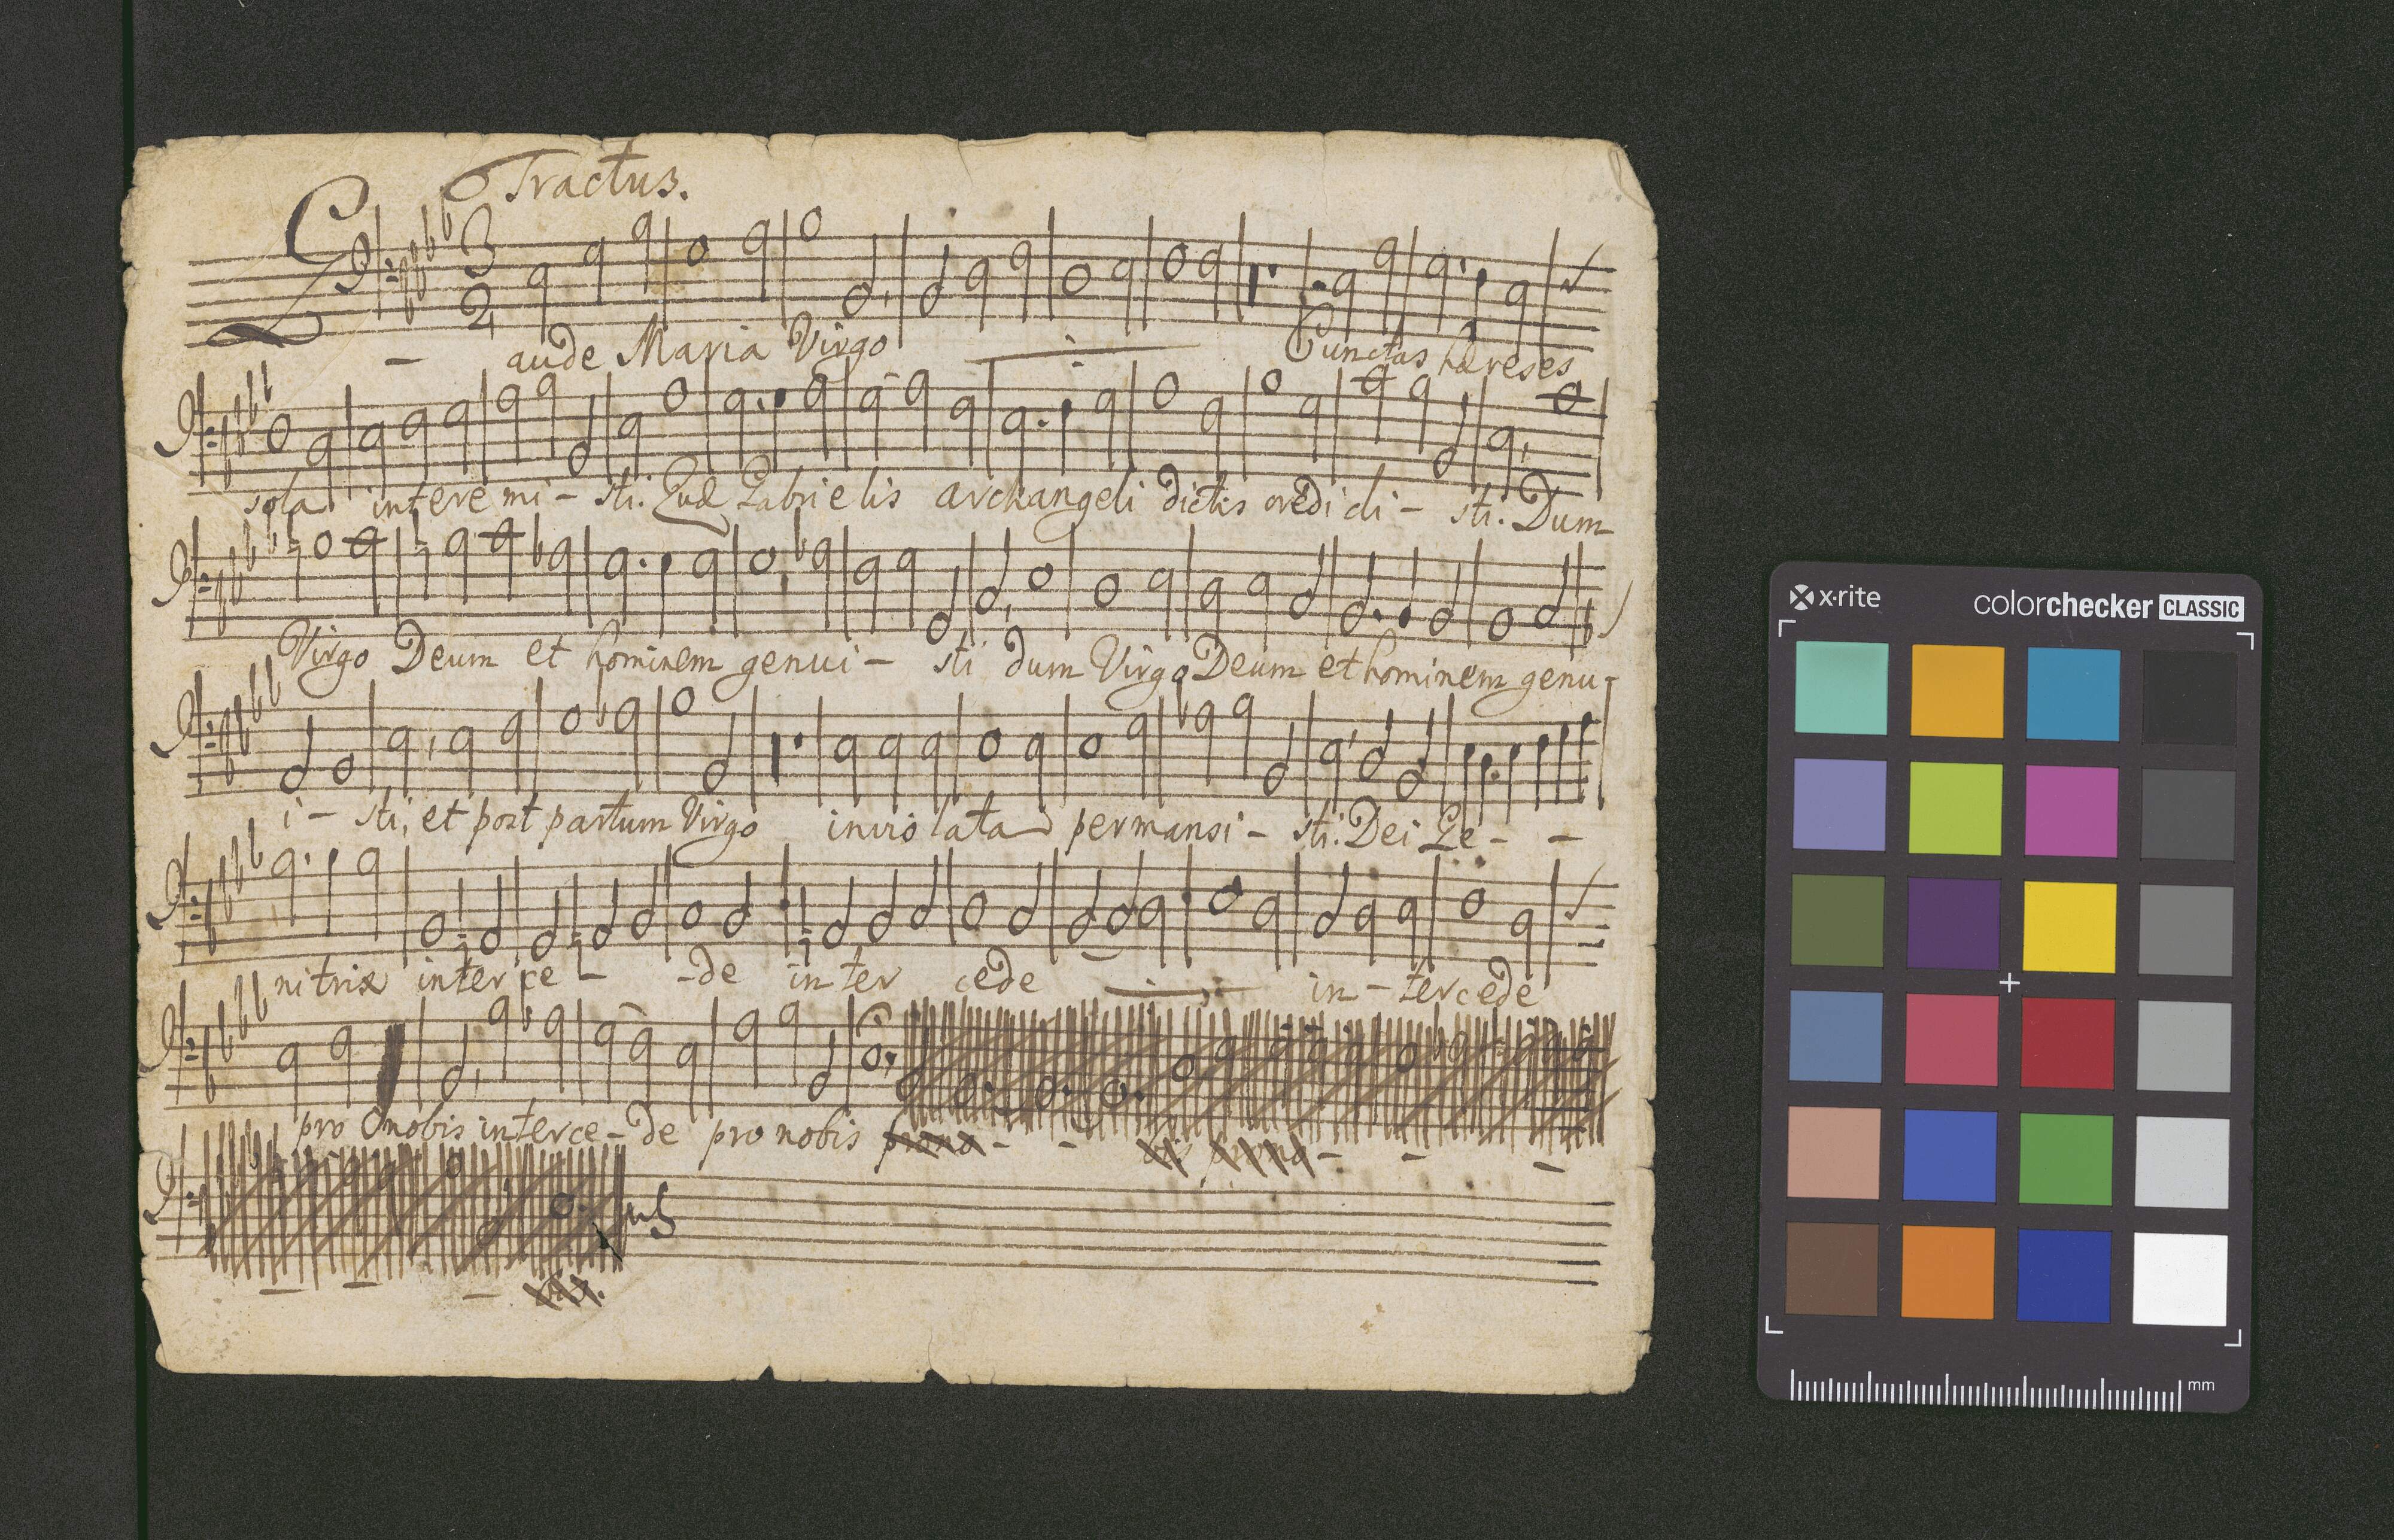 Tractus.
3
2
Gaude Maria Virgo Cunctas hæreses
sola interemi - sti. Quæ Gabrielis archangeli dictis credidi - sti. Dum
Virgo Deum et hominem genui - sti dum Virgo Deum et hominem genu-
i - sti, et post partum Virgo inviolata permansi - sti. Dei Ge - -
nitrix interce - - de inter cede in - tercede
pro nobis interce - de pro nobis
x·rite
colorchecker CLASSIC
mm